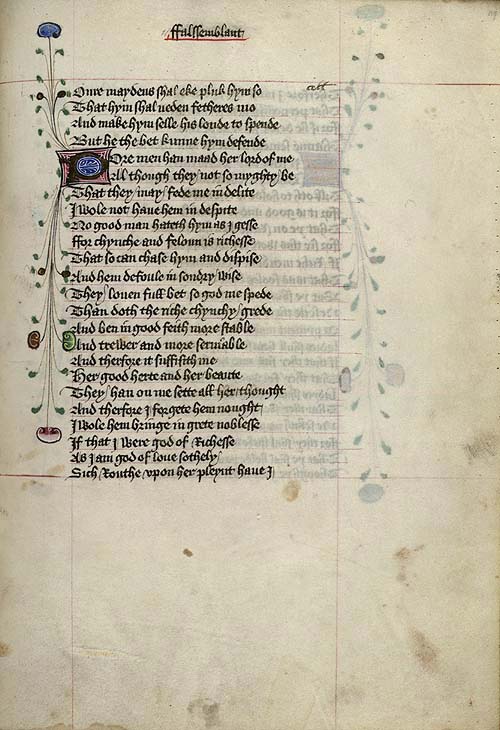 ffalssemblant
Oure maydens shal eke pluk hym so
That hym shal neden fetheres mo
And make hym selle his londe to spende
But he the bet kunne hym defende
Pore men han maad her lord of me
All though they not so myghty be
That they may fede me in delite
I wole not haue hem in despite
No good man hateth hym as I gesse
ffor chynche and feloun is richesse
That so can chase hym and dispise
And hem defoule in sondry wise
They louen full bet so god me spede
Than doth the riche chynchy grede
And ben in good feith more stable
And trewer and more seruiable
And therfore it suffisith me
Her good herte and her beaute
They han on me sette all her thought
And therfore I forgete hem nought
I wole hem bringe in grete noblesse
If that I were god of Richesse
As I am god of loue sothely
Sich Routhe vpon her pleynt haue I